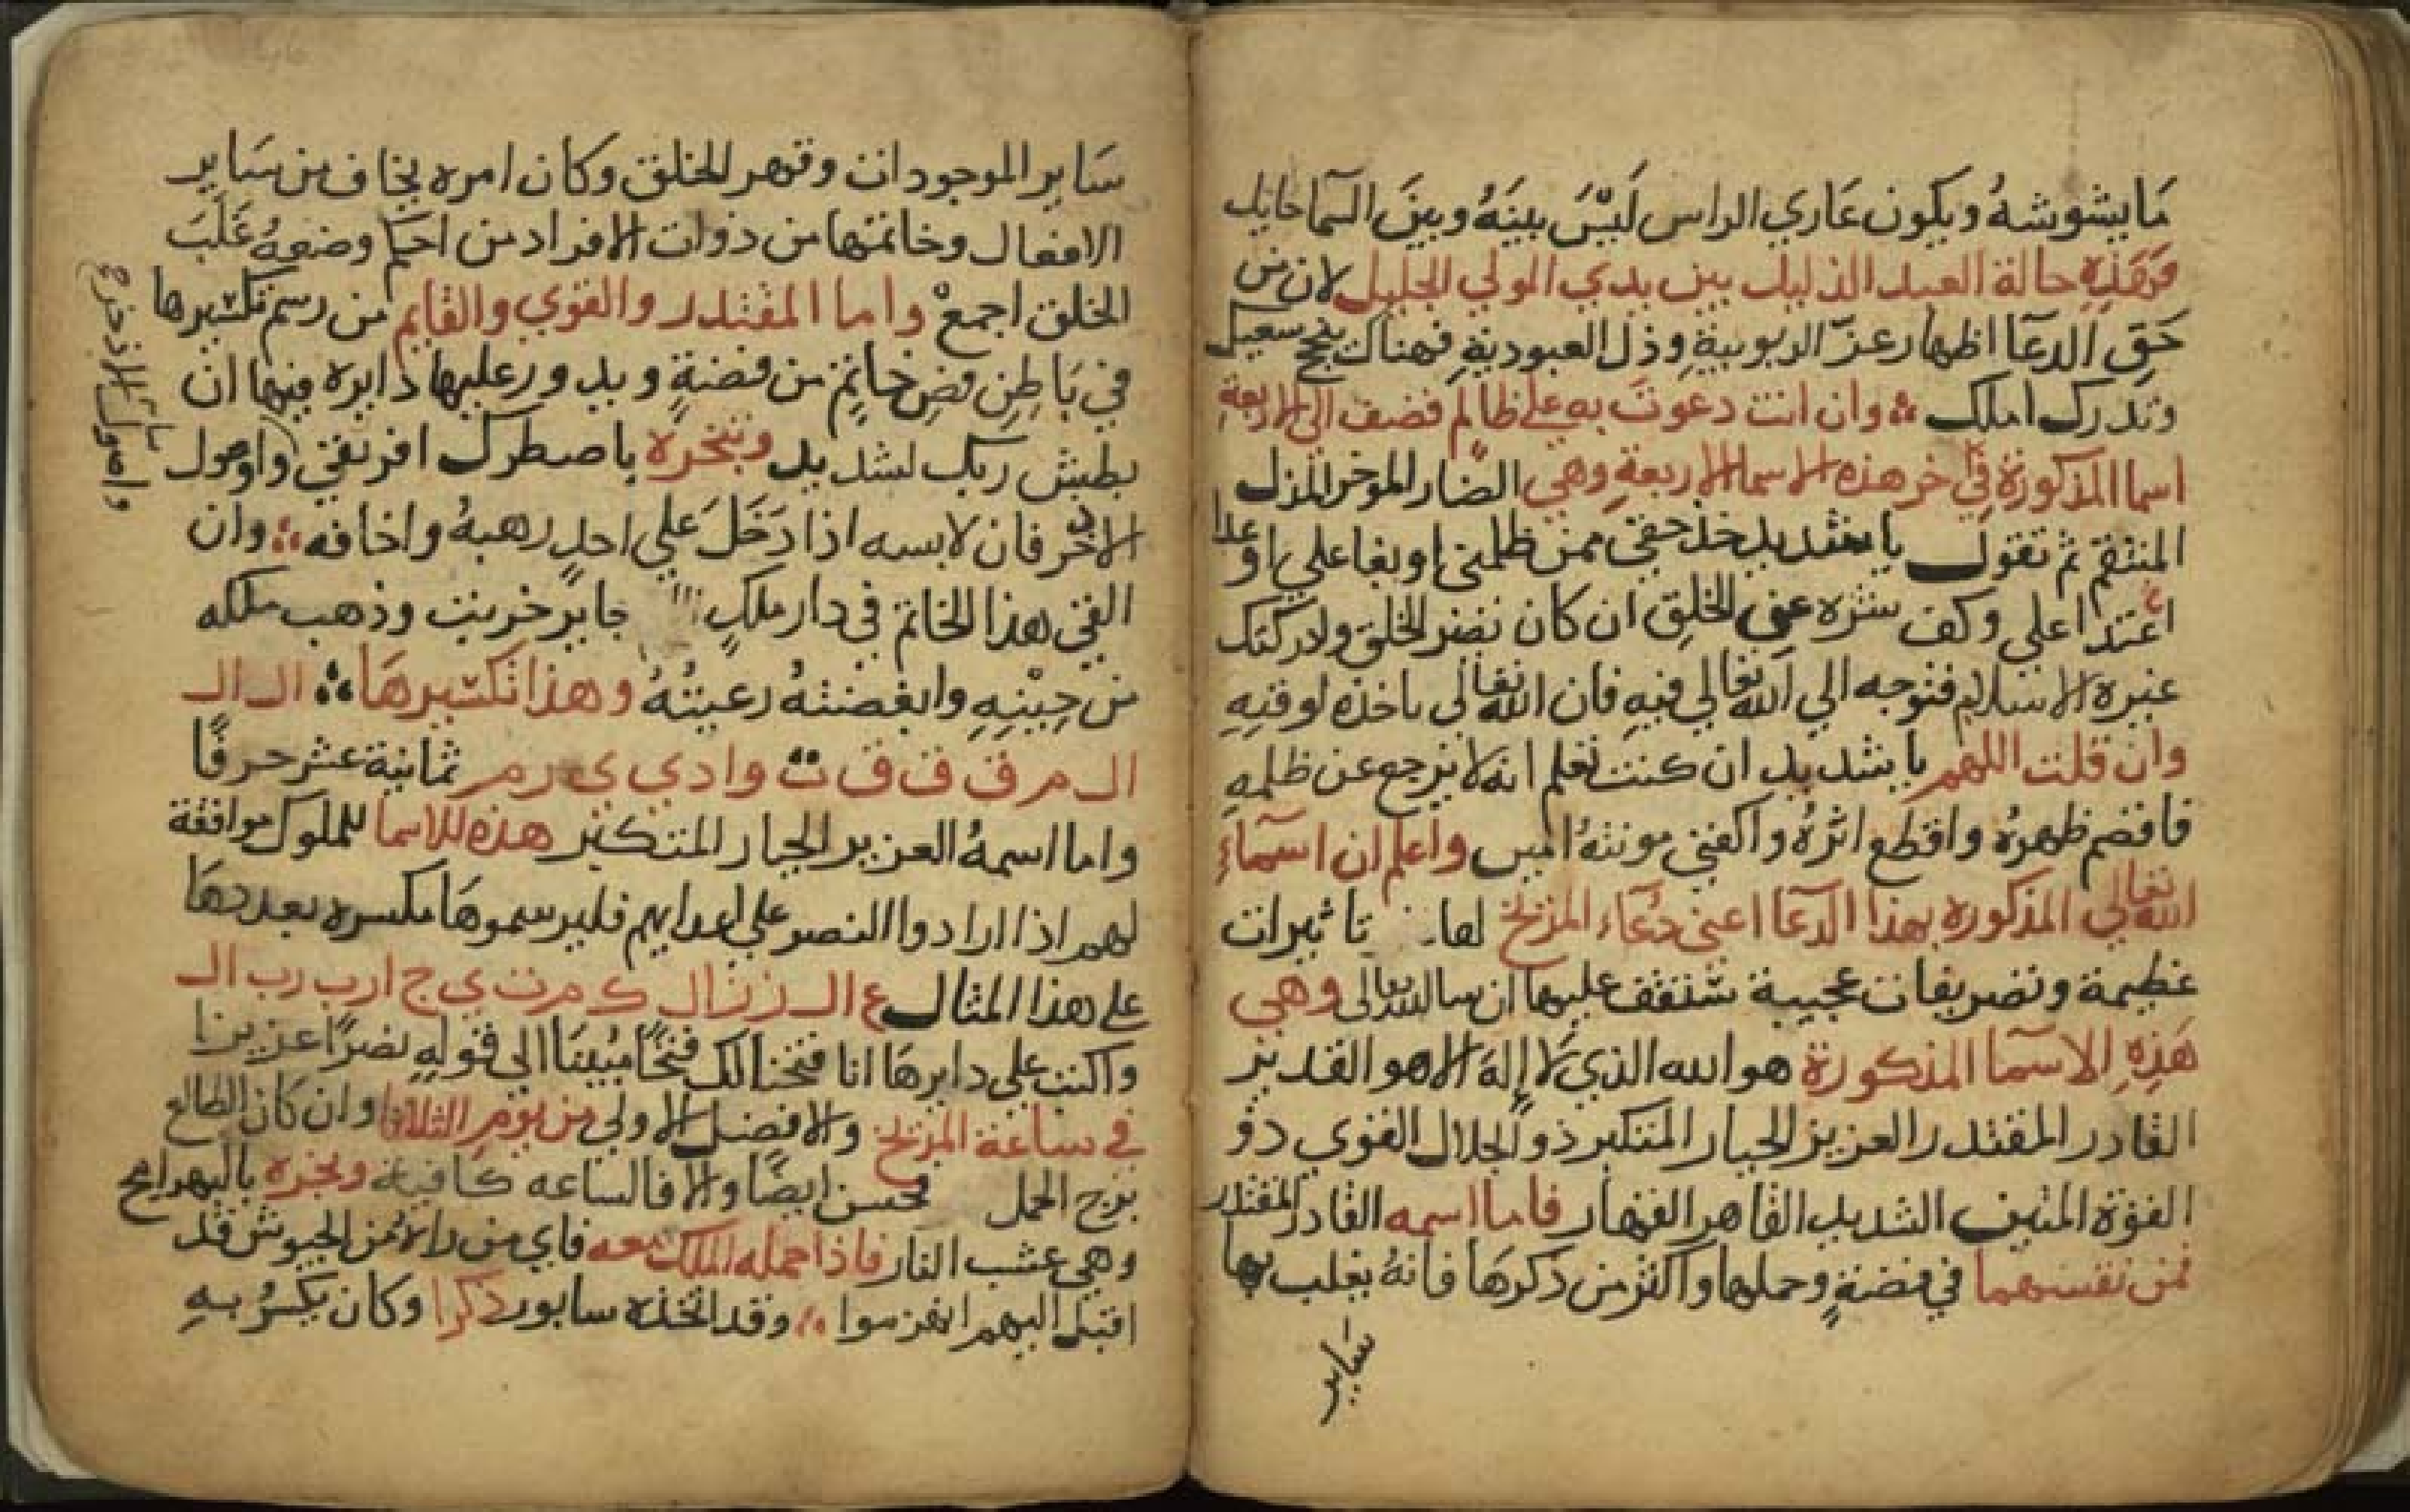 ما يشوشه ويكون عاري الراس لَيْسَ بينَهُ وبينَ السما حايل
وَهَذِهِ حالة العبد الذليل بين يدي المولي الجليل لان من
حَقِ الدعآ اظهار عزّ الربوبيةِ وذل العبوديةِ فهناك ينجح سعيك
وتدرك املك وان انت دعوتَ به علي ظالم فضف الي الاربعة
اسما المذكورة في اخر هذه الاسما الاربعةِ وهي الضار الموخر المذل
المنتقم ثم تقول يا شديد خذ حقي ممن ظلمني او بغا علي او عدا
اعتدا علي وكف شره عن الخلقِ ان كان يضر الخلق ولدركتك
غيره الاسلام فتوجه الي الله تعالي فيهِ فان الله تعالي ياخذه لوقتِهِ
وان قلت اللهم يا شديد ان كنت تعلم انه لا يرجع عن ظلمهِ
فاقصم ظهرهُ واقطع اثرهُ واكفني مونتهُ امين واعلم ان اسمآءَ
الله تعالي المذكوره بهذا الدعآ اعني دُعآء المريخ لها تاثيرات
عظيمة وتصريفات عجيبة ستقف عليها ان شا الله تعالى وهي
هَذِهِ الاسمآ المذكورة هو الله الذي لا إلهَ الا هو القدير
القادر المقتدر العزيز الجبار المتكبر ذو الجلال القوي ذو
القوة المتين الشديد القاهر القهار فاما اسمه القادر المقتدر
فمن نقشهما في فضةٍ وحملها واكثر من ذكرهَا فانهُ يغلب بها
سَاير
سَاير الموجودات وقهر الخلق وكان امره يخاف من سَاير
الافعال وخاتمتها من ذوات الافراد من احكم وضعهُ غَلَبَ
الخلق اجمعْ واما المقتدر والقوي والقايم من رسم تكسيرها
في بَاطِنِ فصِ خاتمٍ من فضةٍ ويدور عليها دايره فيها ان
بطش ربك لشديد وتبخره باصطرك افريقي واصول
الاذخر فان لابسه اذا دَخَلَ علي احدٍ رهبهُ واخافه وان
القي هذا الخاتم في دار ملكٍ جايرٍ خربت وذهب ملكه
من حِيْنِهِ وابغضتهُ رعيتُهُ وهذا تكسيرهَا ال ال
ال م ق ق ق ت وا د ي ي ي ر م ثمانية عشر حرفًا
واما اسمهُ العزيز الجبار المتكبر هذه الاسما للملوك موافقة
لهم اذا ارادوا النصر علي اعدايهم فليرسموهَا مكسره بعددهَا
علي هذا المثال ع ال ز ز ال ك م ت ي ج ا ر ب ر ب ال
واكتب علي دايرهَا انا فتحنا لك فتحًا مُبينَا الي قولهِ نصرًا عزيزا
في ساعة المريخ والافضل الاولي من يوم الثلاثا وان كان الطالع
برج الحمل فحسن ايضًا والا فالساعه كافية وبخره بالبهرامج
وهي عشب النار فاذا حمله الملك معه فاي من راه من الجيوش قد
اقبل اليهم انهزموا وقد اتخذه سابور ذكرا وكان يكسرُ بهِ
واصول الاذخر